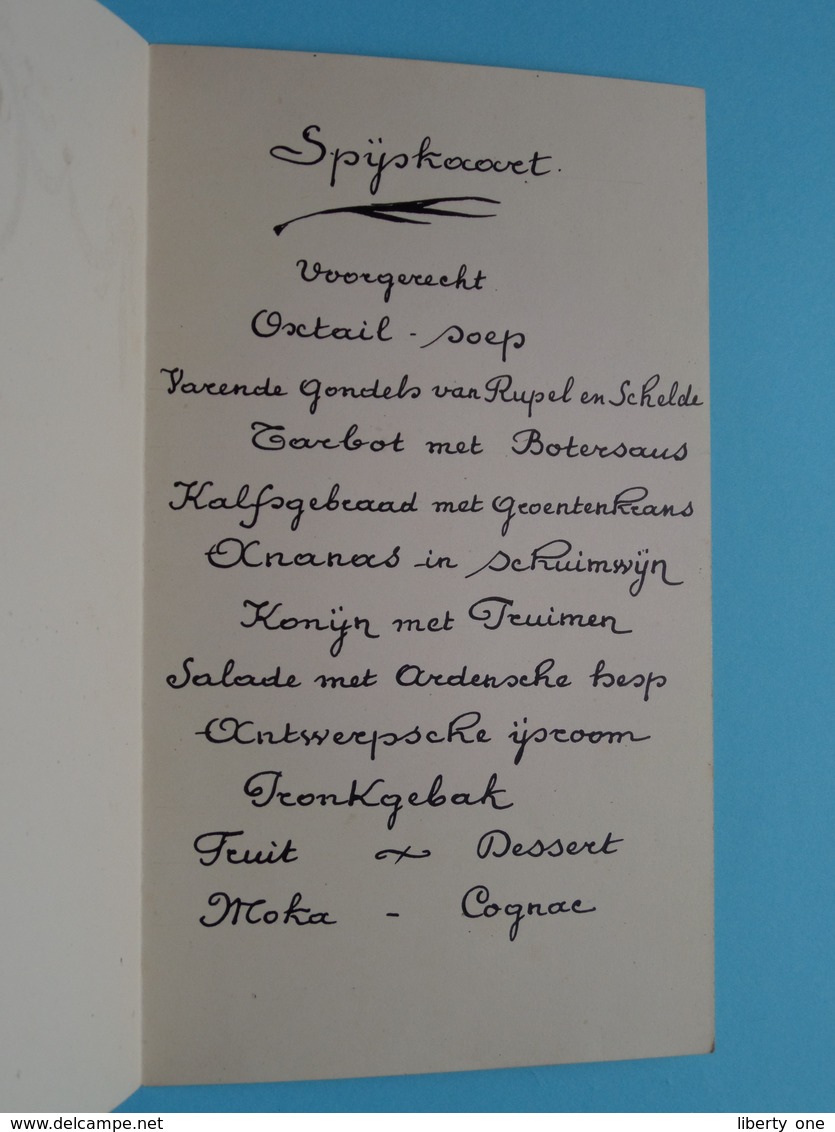 Spijskaart.
Voorgerecht
Oxtail - soep
Varende Gondels van Rupel en Schelde
Tarbot met Botersaus
Kalfsgebraad met Groentenkrans
Ananas in schuimwijn
Konijn met Pruimen
Salade met Ardensche hesp
Antwerpsche ijsroom
Pronkgebak
Fruit & Dessert
Moka - Cognac
www.delcampe.net
liberty one